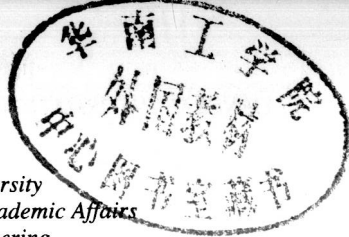 华南工学院
外国教材
中心图书室藏书
rsity
ademic Affairs
ering